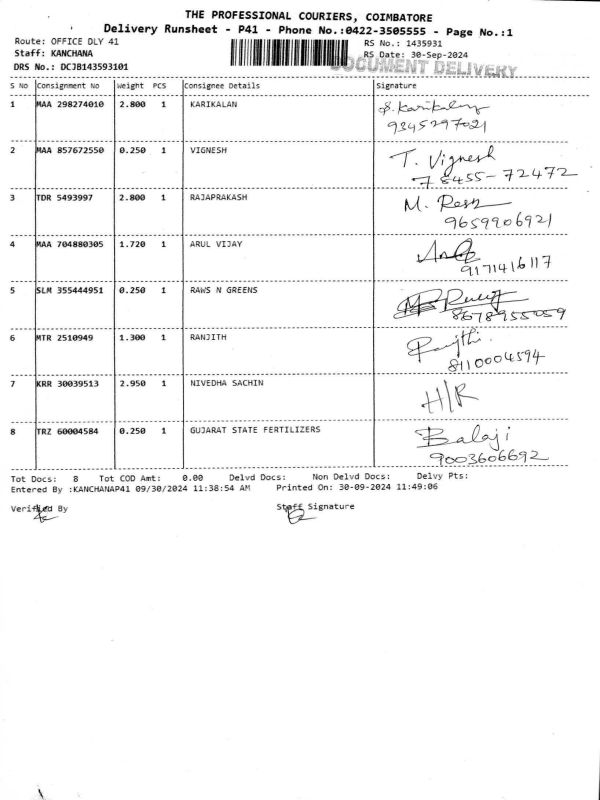 THE PROFESSIONAL COURIERS, COIMBATORE
Delivery Runsheet - P41 - Phone No.:0422-3505555 - Page No.:1
Route: OFFICE DLY 41 RS No.: 1435931
Staff: KANCHANA RS Date: 30-Sep-2024
DRS No.: DCJB143593101 DOCUMENT DELIVERY
S No Consignment No Weight PCS Consignee Details Signature
1 MAA 298274010 2.800 1 KARIKALAN S. Karikalan
9345297021
2 MAA 857672550 0.250 1 VIGNESH T. Vignesh
78455-72472
3 TDR 5493997 2.800 1 RAJAPRAKASH M.
9659906921
4 MAA 704880305 1.720 1 ARUL VIJAY
9171416117
5 SLM 355444951 0.250 1 RAWS N GREENS
8678955059
6 MTR 2510949 1.300 1 RANJITH Ranjith
8110004594
7 KRR 30039513 2.950 1 NIVEDHA SACHIN H/R
8 TRZ 60004584 0.250 1 GUJARAT STATE FERTILIZERS Balaji
9003606692
Tot Docs: 8 Tot COD Amt: 0.00 Delvd Docs: Non Delvd Docs: Delvy Pts:
Entered By :KANCHANAP41 09/30/2024 11:38:54 AM Printed On: 30-09-2024 11:49:06
Verified By Staff Signature